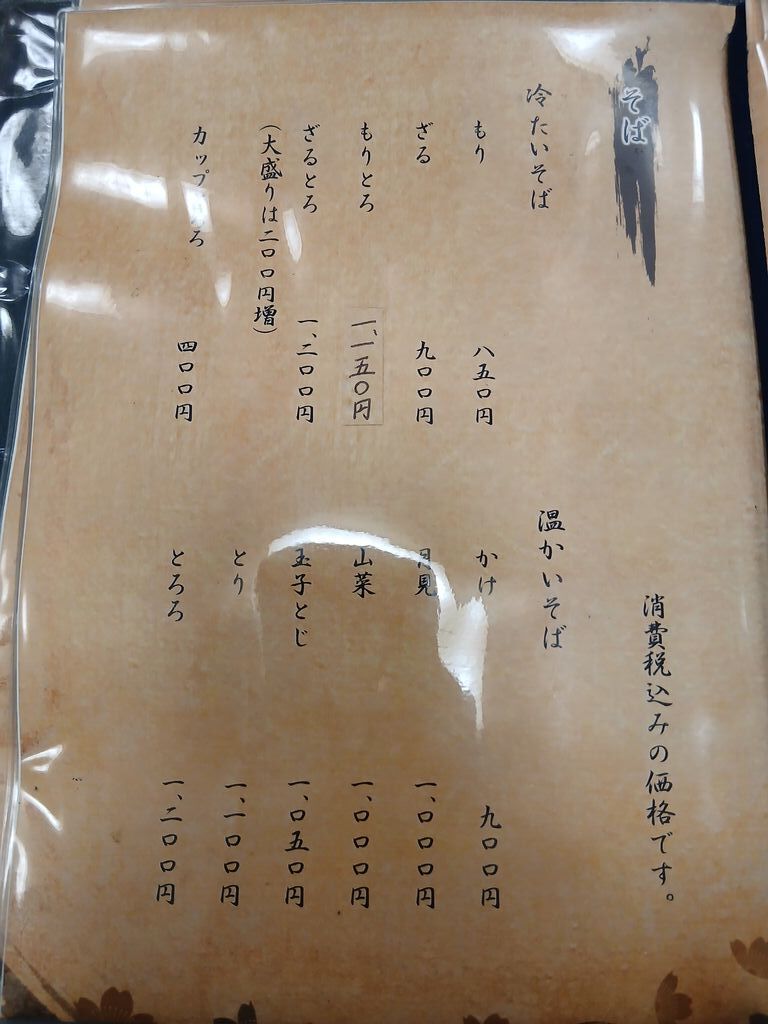 そば
消費税込みの価格です。
冷たいそば
もり 八五〇円
ざる 九〇〇円
もりとろ 一、一五〇円
ざるとろ 一、二〇〇円
(大盛りは二〇〇円増)
カップとろ 四〇〇円
温かいそば
かけ 九〇〇円
月見 一、〇〇〇円
山菜 一、〇〇〇円
玉子とじ 一、〇五〇円
とり 一、一〇〇円
とろろ 一、二〇〇円